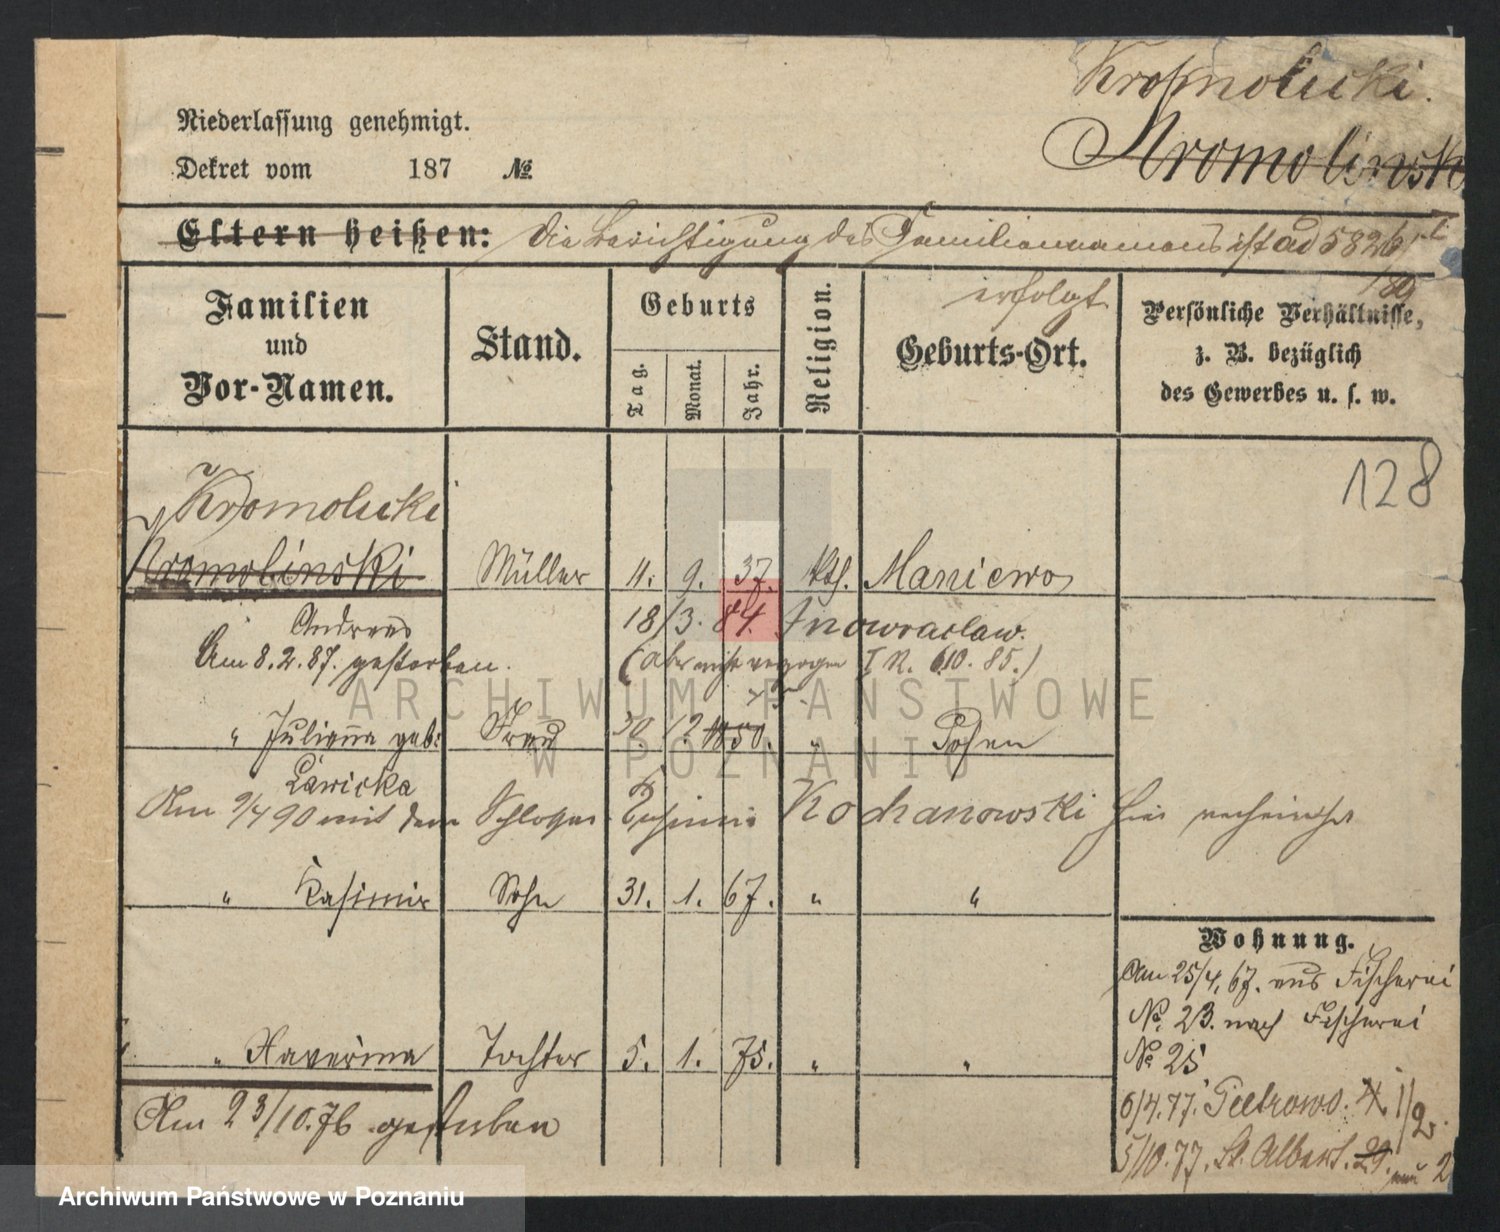 Kromolicki.
Niederlassung genehmigt.
Kromolinsk
Dekret vom 187 №
Eltern heißen: Die Berichtigung des Familiennamens ist ad 5826
erfolgt
Familien und Vor-Namen.
Stand.
Geburts
Tag.
Monat.
Jahr.
Religion.
Geburts-Ort.
Persönliche Verhältnisse,
z. B. bezüglich
des Gewerbes u. s. w.
128
Kromolicki
Kromolinski Müller 11. 9. 37. kth. Maniewo
Andreas 18/3. 84. Inowraclaw.
Am 8.2.87. gestorben. (aber nicht verzogen I R. 610. 85.)
" Julianna geb: Frau 1850. " Posen
Lawicka
Am 9/4 90 mit dem Schlosser Kochanowski hier
" Kasimir Sohn 31. 1. 67. " "
Wohnung.
Am 25/4. 67. aus Fischerei
№ 23. nach Fischerei
№ 25
" Xaverina Tochter 5. 1. 75. " "
Am 23/10.76 gestorben
6/4.77. Pietrowo.
5/10.77. St. Albert. 29.
ARCHIWUM PAŃSTWOWE
W POZNANIU
Archiwum Państwowe w Poznaniu